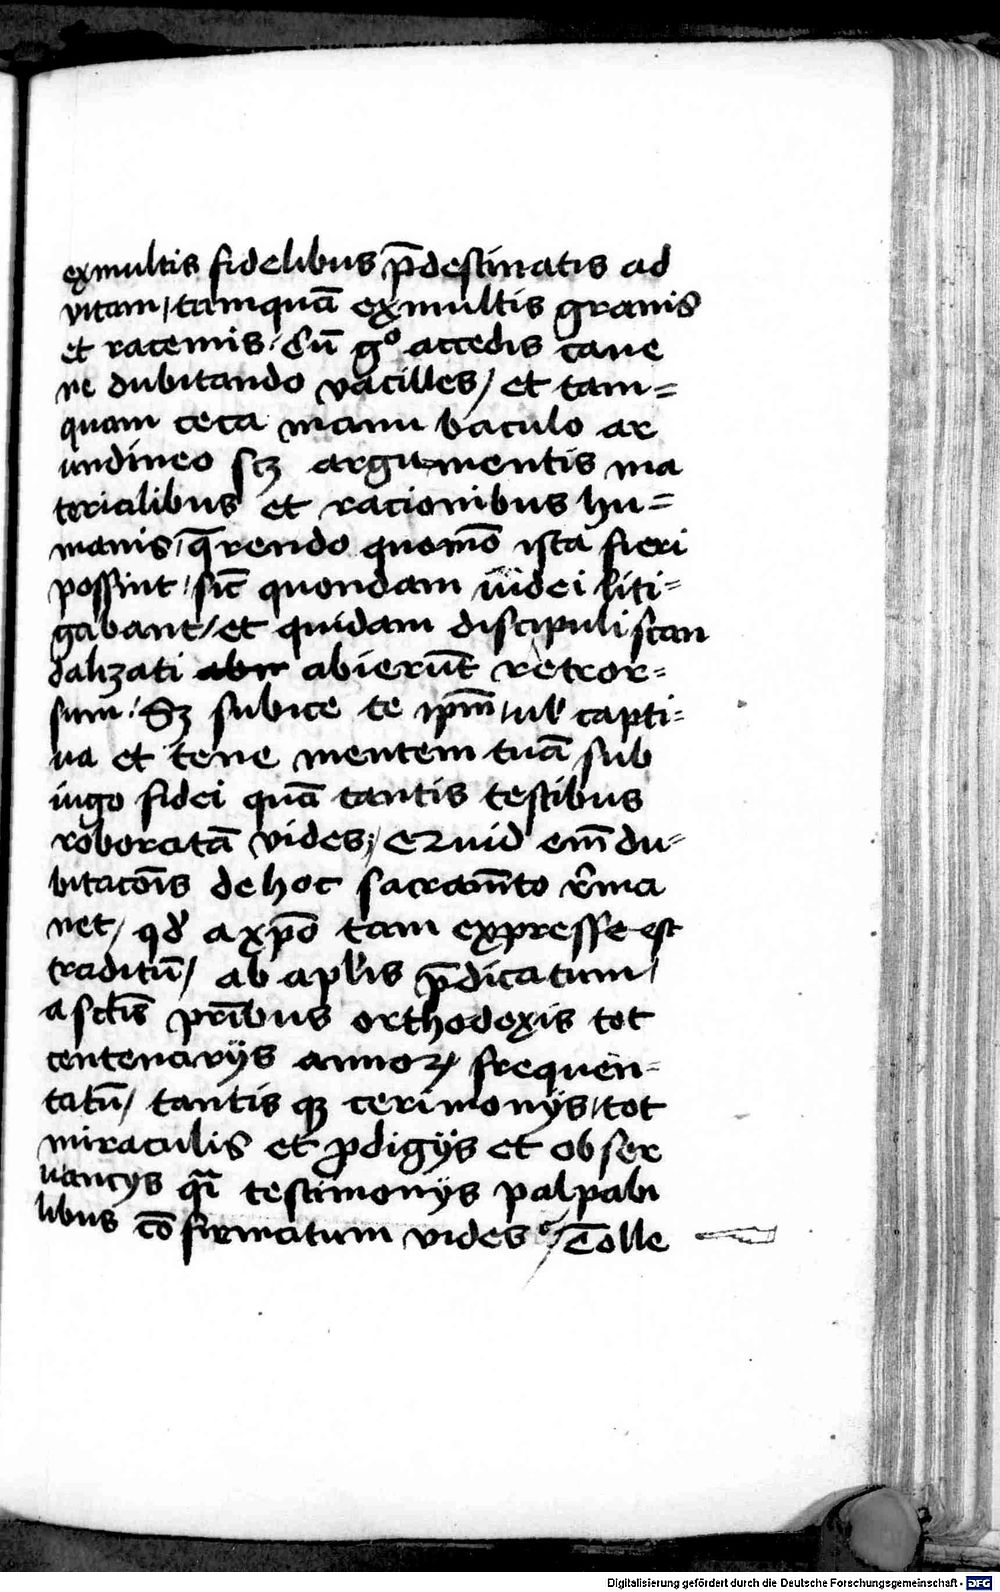 exmultis fidelibus p̄destinatis ad
vitam / tamquā exmultis granis
et racemis / Cū gͦ accedis caue
ne dubitando vacilles / et tam=
quam ceca manu baculo ar
undineo scꝫ argumentis ma
terialibus et racionibus hu=
manis / q̄rendo quomō ista fieri
possint / sic̄ quondam iudei liti=
gabant / et quidam discipuli scan
dalizati abierūt retror=
sum / Sꝫ subice te ip̄m / ul̛ capti=
ua et tene mentem tuā sub
iugo fidei quā tantis testibus
roboratā vides / Quid em̄ du=
bitacōis de hoc sacram̄to r̄ma
net / qđ a xp̄o tam expresse est
traditū / ab apl̛is p̄dicatum /
a sc̄tis pr̄ibus orthodoxis tot
centenarijs annoꝝ frequen=
tatū / tantis qꝫ cerimonijs / tot
miraculis et ꝓdigijs et obser
uancijs qͣi testimonijs palpabi
libus cōfirmatum vides / Tolle
Digitalisierung gefördert durch die Deutsche Forschungsgemeinschaft - DFG